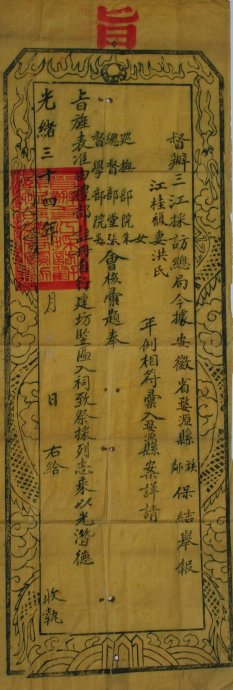 旨
督辦三江採訪總局今據安徽省婺源縣族鄰保結舉報
江桂馥妻洪氏
女
年例相符彙入婺源縣案詳請
巡撫部院
總督部堂
督學部院
會核彙題奉
旨旌表准自行建坊豎匾入祠致祭採列志乘以光潛德
右給 收執
光緒三十四年 月 日